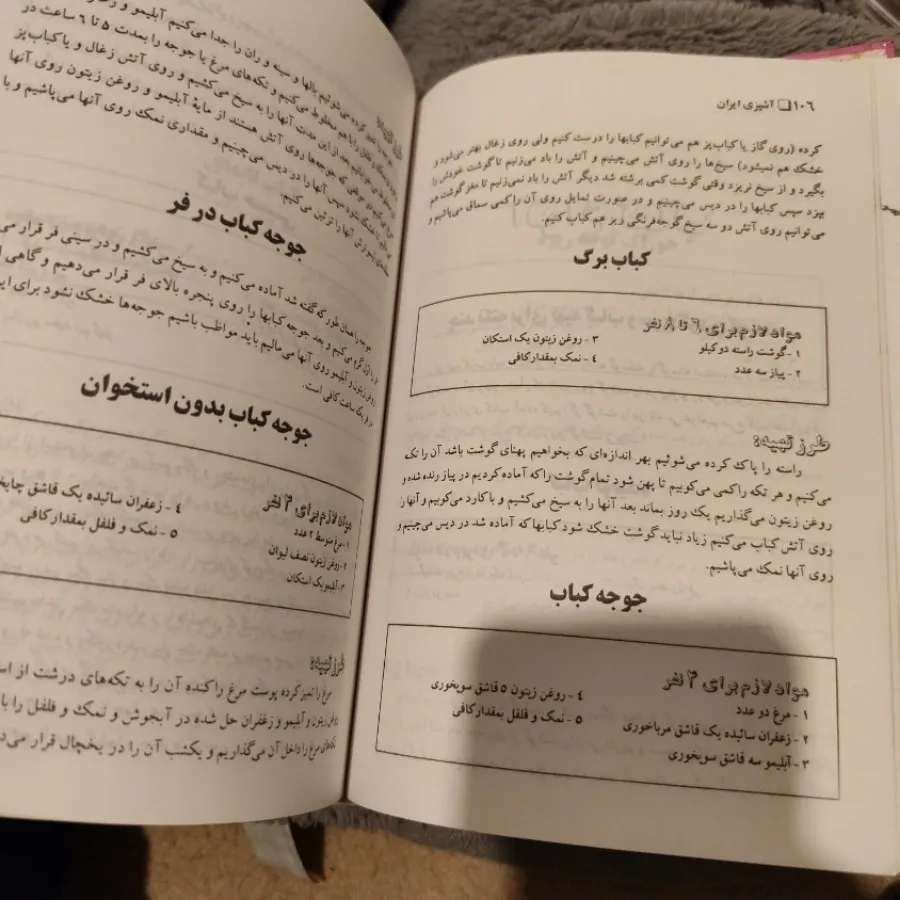 ۱۰۶ ❏ آشپزی ایران
کرده (روی گاز یا کباب‌پز هم می‌توانیم کبابها را درست کنیم ولی روی زغال بهتر می‌شود و
خشک هم نمیشود) سیخ‌ها را روی آتش می‌چینیم و آتش را باد می‌زنیم تا گوشت خودش را
بگیرد و از سیخ نریزد وقتی گوشت کمی برشته شد دیگر آتش را باد نمی‌زنیم تا مغز گوشت هم
بپزد سپس کبابها را در دیس می‌چینیم و در صورت تمایل روی آن را کمی سماق می‌پاشیم و
می‌توانیم روی آتش دو سه سیخ گوجه‌فرنگی ریز هم کباب کنیم.
کباب برگ
مواد لازم برای ۶ تا ۸ نفر
۱ - گوشت راسته دو کیلو
۲ - پیاز سه عدد
۳ - روغن زیتون یک استکان
۴ - نمک بمقدار کافی
طرز تهیه:
راسته را پاک کرده می‌شوئیم بهر اندازه‌ای که بخواهیم پهنای گوشت باشد آن را تک
می‌کنیم و هر تکه را کمی می‌کوبیم تا پهن شود تمام گوشت را که آماده کردیم در پیاز رنده شده و
روغن زیتون می‌گذاریم یک روز بماند بعد آنها را به سیخ می‌کشیم و با کارد می‌کوبیم و آنها را
روی آتش کباب می‌کنیم زیاد نباید گوشت خشک شود کبابها که آماده شد در دیس می‌چینیم و
روی آنها نمک می‌پاشیم.
جوجه کباب
مواد لازم برای ۴ نفر
۱ - مرغ دو عدد
۲ - زعفران سائیده یک قاشق مرباخوری
۳ - آبلیمو سه قاشق سوپخوری
۴ - روغن زیتون ۵ قاشق سوپخوری
۵ - نمک و فلفل بمقدار کافی
را جدا می‌کنیم آبلیمو و
تمیز کرده می‌شوئیم بالها و سینه و ران
را با هم مخلوط می‌کنیم و تکه‌های مرغ یا جوجه را بمدت ۵ تا ۶ ساعت در
بعد از این مدت آنها را به سیخ می‌کشیم و روی آتش زغال و یا کباب‌پز
که جوجه‌ها روی آتش هستند از مایهٔ آبلیمو و روغن زیتون روی آنها
سپس آنها را در دیس می‌چینیم و مقداری نمک روی آنها می‌پاشیم و با
آنها را تزئین می‌کنیم
جوجه کباب در فر
جوجه را همان طور که گفته شد آماده می‌کنیم و به سیخ می‌کشیم و در سینی فر قرار می
گرم می‌کنیم و بعد جوجه کبابها را روی پنجره بالای فر قرار می‌دهیم و گاهی
روغن زیتون و آبلیمو روی آنها می‌مالیم باید مواظب باشیم جوجه‌ها خشک نشود برای این
در فر یک ساعت کافی است.
جوجه کباب بدون استخوان
مواد لازم برای ۴ نفر
۱ - مرغ متوسط ۲ عدد
۲ - روغن زیتون نصف لیوان
۳ - آبلیمو یک استکان
۴ - زعفران سائیده یک قاشق
۵ - نمک و فلفل بمقدار کافی
طرز تهیه:
مرغ را تمیز کرده پوست مرغ را کنده آن را به تکه‌های درشت از
روغن زیتون و آبلیمو و زعفران حل شده در آبجوش و نمک و فلفل را با
تکه‌های مرغ را داخل آن می‌گذاریم و یکشب آن را در یخچال قرار می‌د